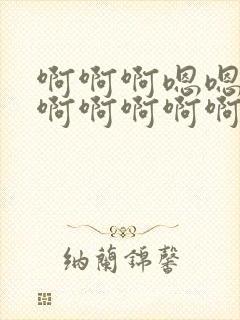 啊啊啊嗯嗯
啊啊啊啊啊
纳蘭锦馨